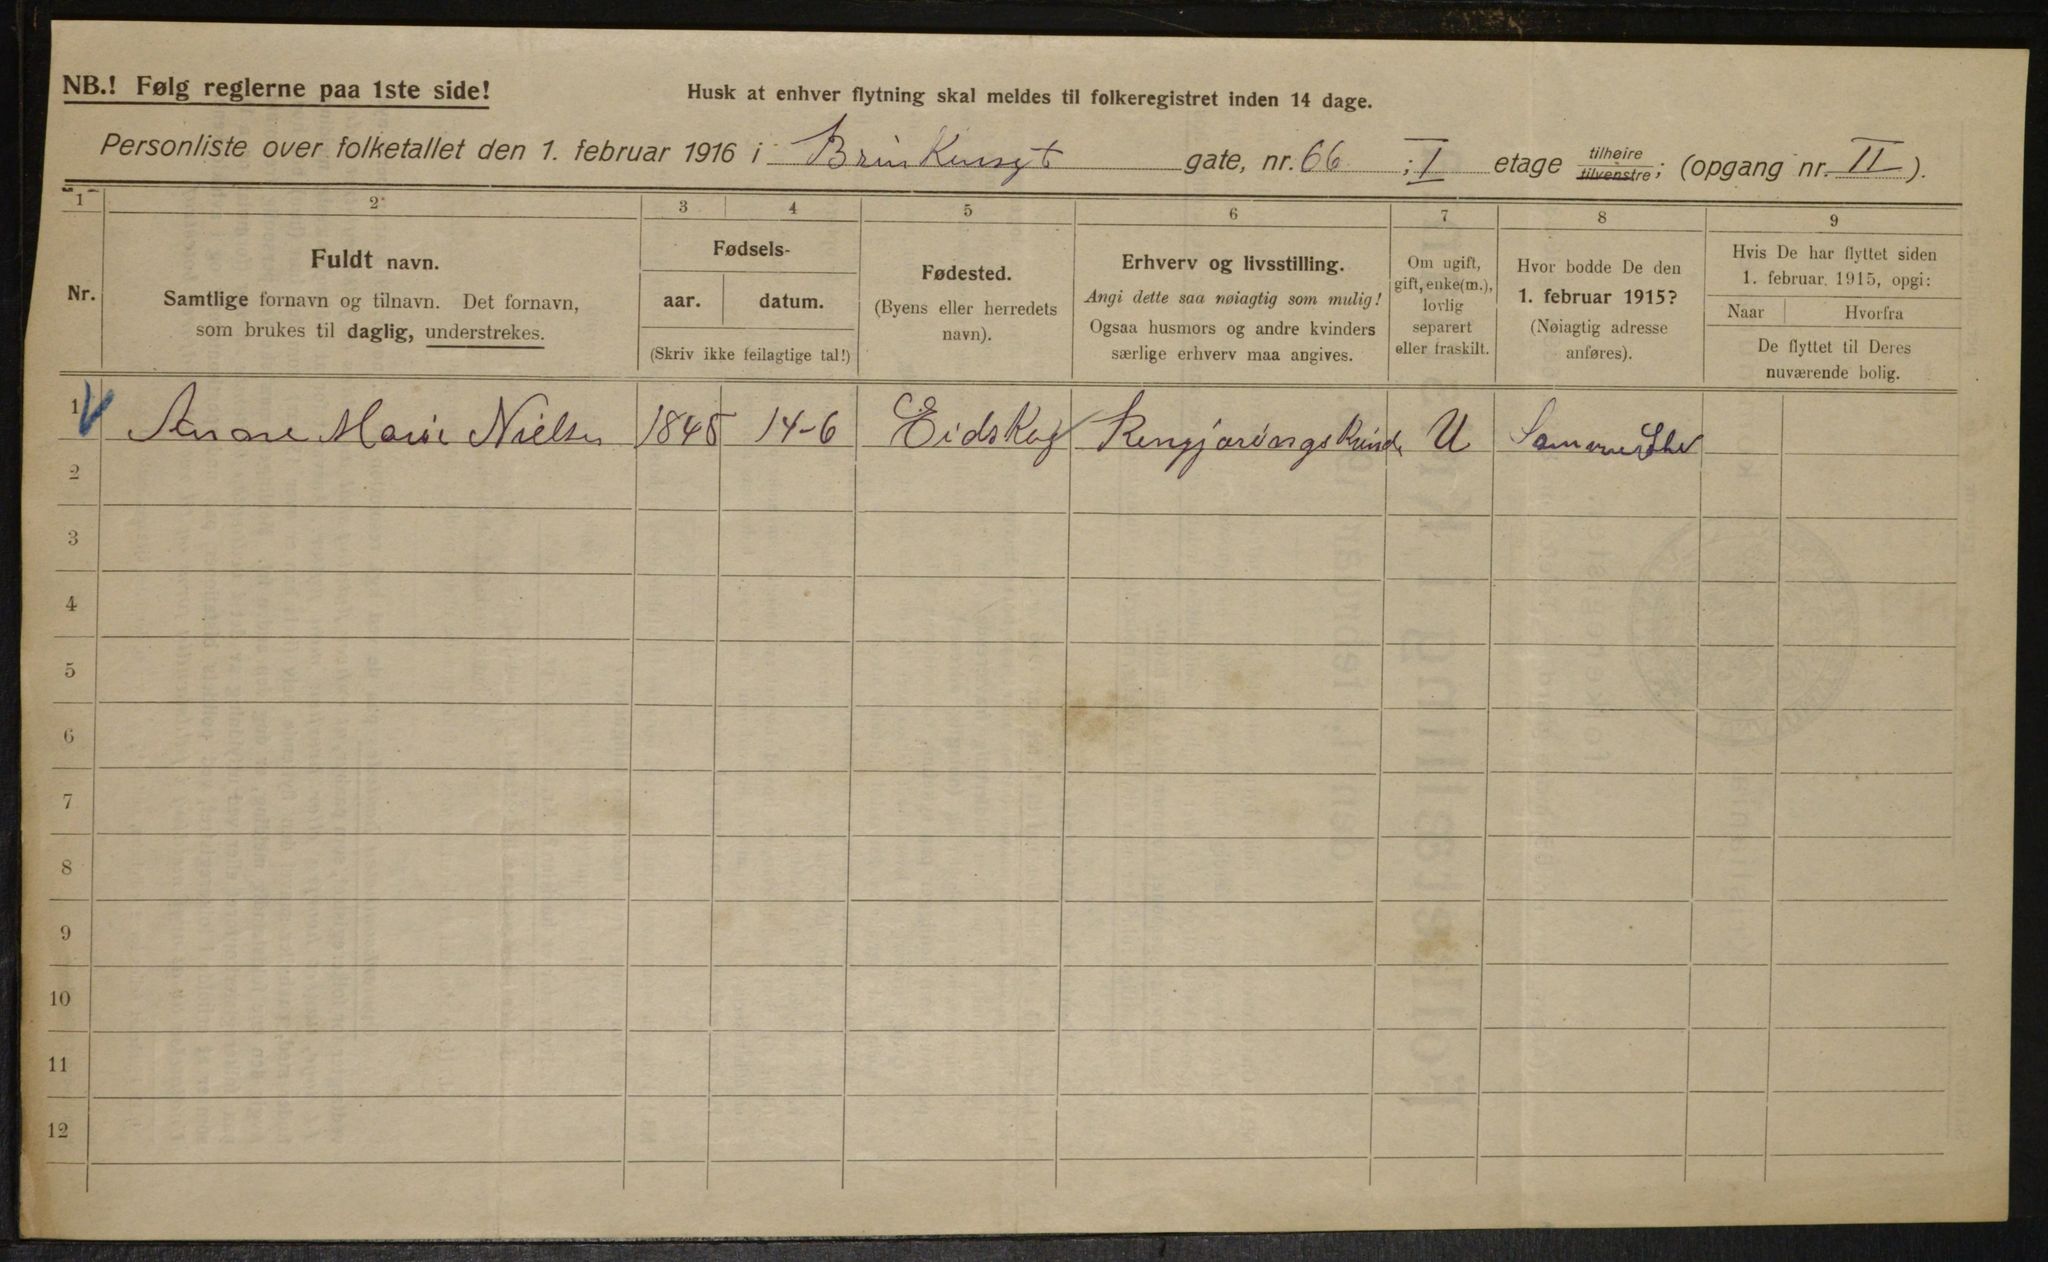 NB.! Følg reglerne paa 1ste side!
Husk at enhver flytning skal meldes til folkeregistret inden 14 dage.
Personliste over folketallet den 1. februar 1916 i Brinkensgt gate, nr. 66 ; I etage tilhøire tilvenstre; (opgang nr. II ).
1 2 3 4 5 6 7 8 9
Nr.
Fuldt navn.
Samtlige fornavn og tilnavn. Det fornavn,
som brukes til daglig, understrekes.
Fødsels-
aar. datum.
(Skriv ikke feilagtige tal!)
Fødested.
(Byens eller herredets
navn).
Erhverv og livsstilling.
Angi dette saa nøiagtig som mulig!
Ogsaa husmors og andre kvinders
særlige erhverv maa angives.
Om ugift,
gift, enke(m.),
lovlig
separert
eller fraskilt.
Hvor bodde De den
1. februar 1915?
(Nøiagtig adresse
anføres).
Hvis De har flyttet siden
1. februar 1915, opgi:
Naar Hvorfra
De flyttet til Deres
nuværende bolig.
1 Anne Marie Nielsen 1845 14-6 Eidskog Rengjøringskvinde U
2
3
4
5
6
7
8
9
10
11
12